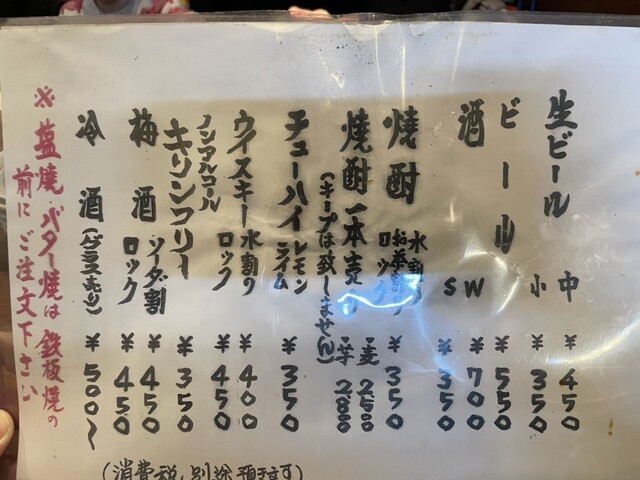 生ビール 中 ¥450
小 ¥350
ビール ¥550
酒 W ¥700
S ¥350
焼酎 水割り お茶割り ロック ¥350
焼酎一本売り ・麦 2500
(キープは致しません) ・芋 2800
チューハイ レモン ライム ¥350
ウイスキー 水割り ¥400
ロック ¥450
ノンアルコール
キリンフリー ¥350
梅酒 ソーダ割 ¥450
ロック ¥450
冷酒 (グラス売り) ¥500〜
※塩焼・バター焼は鉄板焼の
前にご注文下さい
(消費税別途預ります)